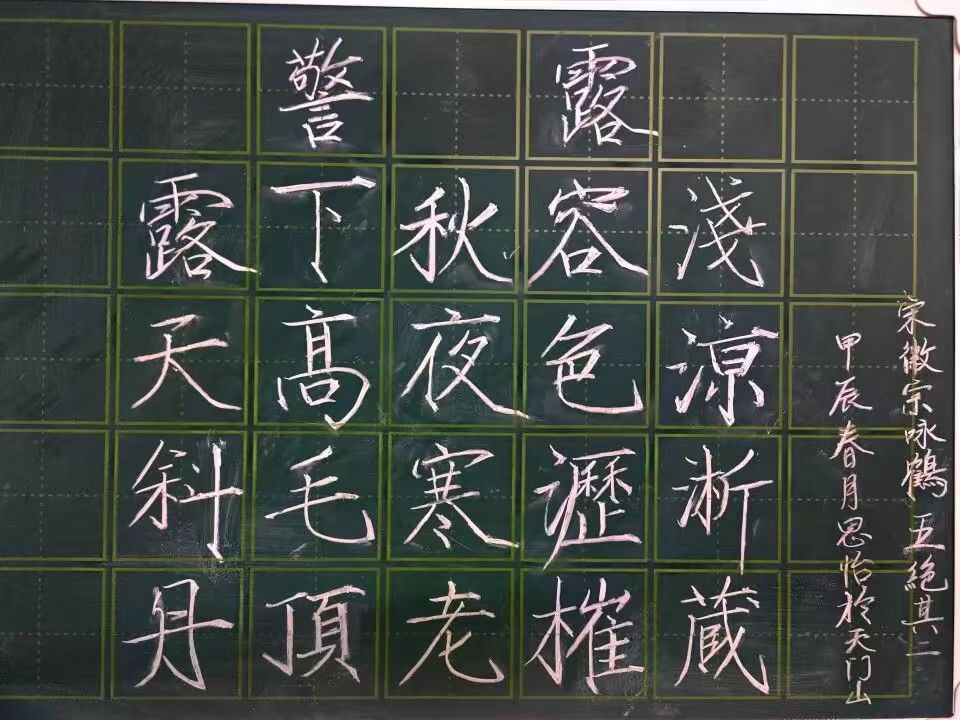 警露
露下秋容淺
天髙夜色涼
斜毛寒瀝淅
丹頂老摧藏
宋徽宗咏鶴五絕其二
甲辰春月思怡於天门山